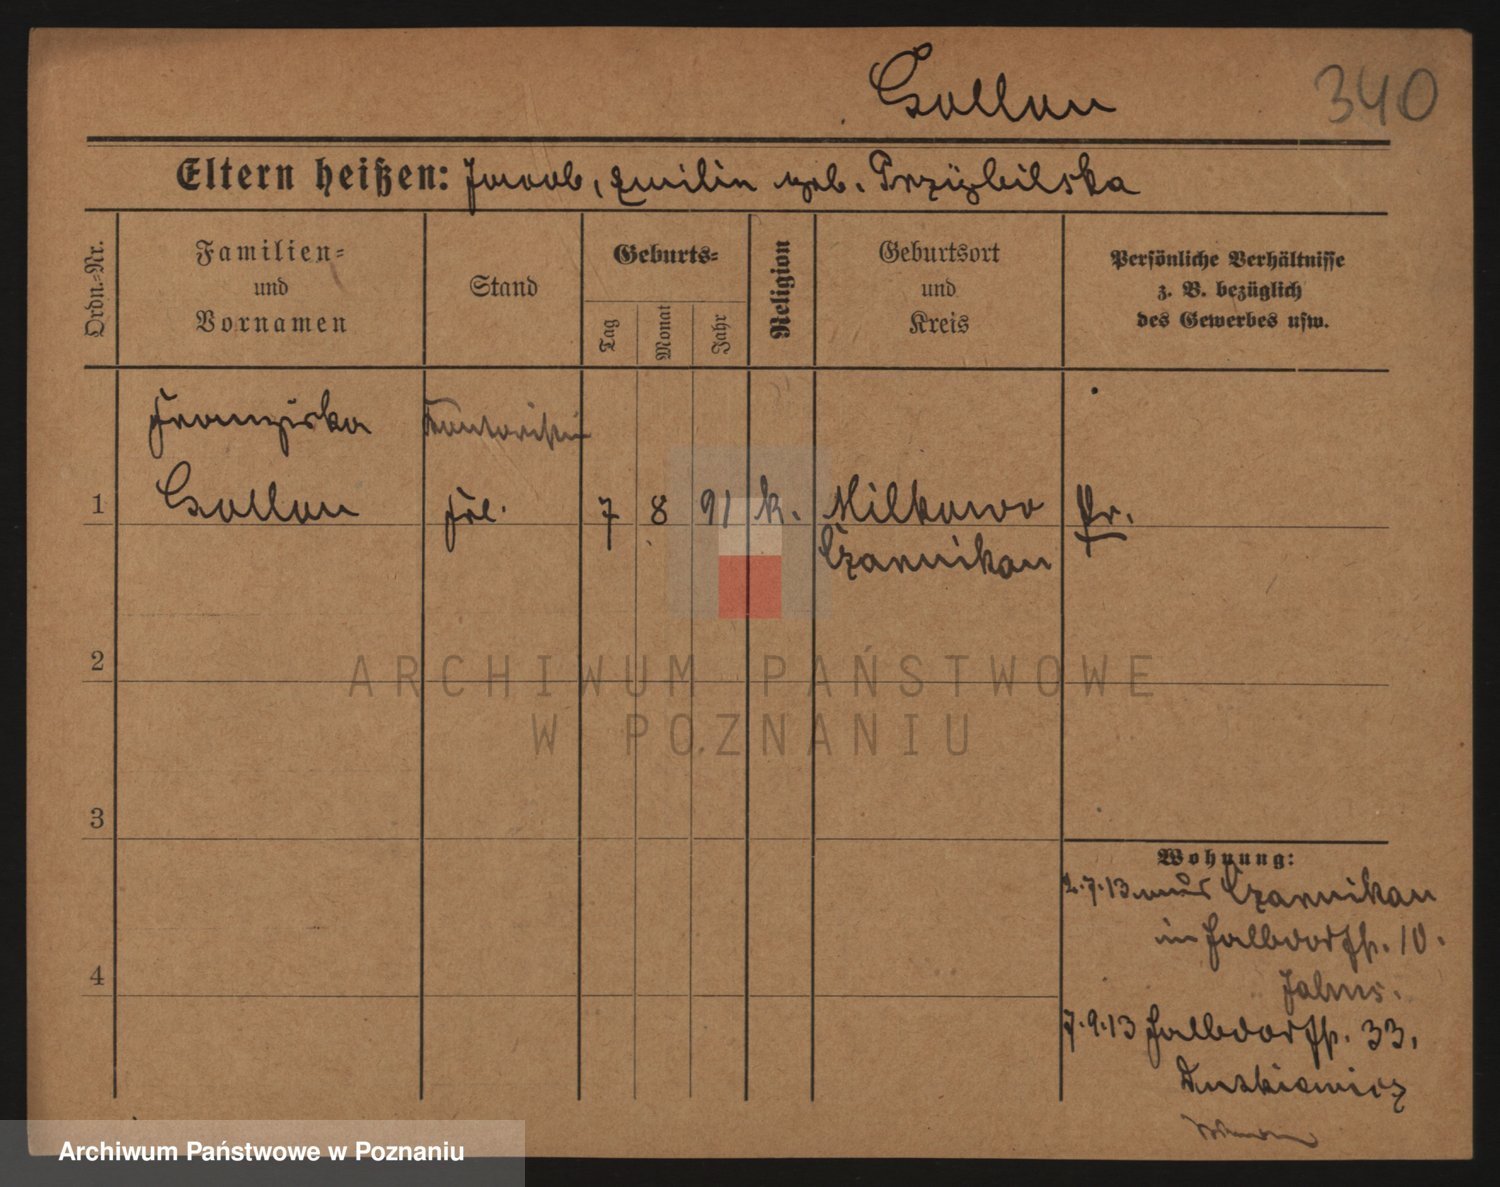 Gollon
340
Eltern heißen: Jacob, Emilie geb. Przÿbilska
Ordn.-Nr.
Familien-
und
Vornamen
Stand
Geburts-
Tag
Monat
Jahr
Religion
Geburtsort
und
Kreis
Persönliche Verhältnisse
z. B. bezüglich
des Gewerbes usw.
Franziska Kontoristin
1 Gollon Frl. 7 8 91 k. Milkowo Pr.
Czarnikau
2
ARCHIWUM PAŃSTWOWE
W POZNANIU
3
Wohnung:
2.7.13 aus Czarnikau
in Halbdorfstr. 10.
7.9.13 Halbdorfstr. 33,
4
Archiwum Państwowe w Poznaniu